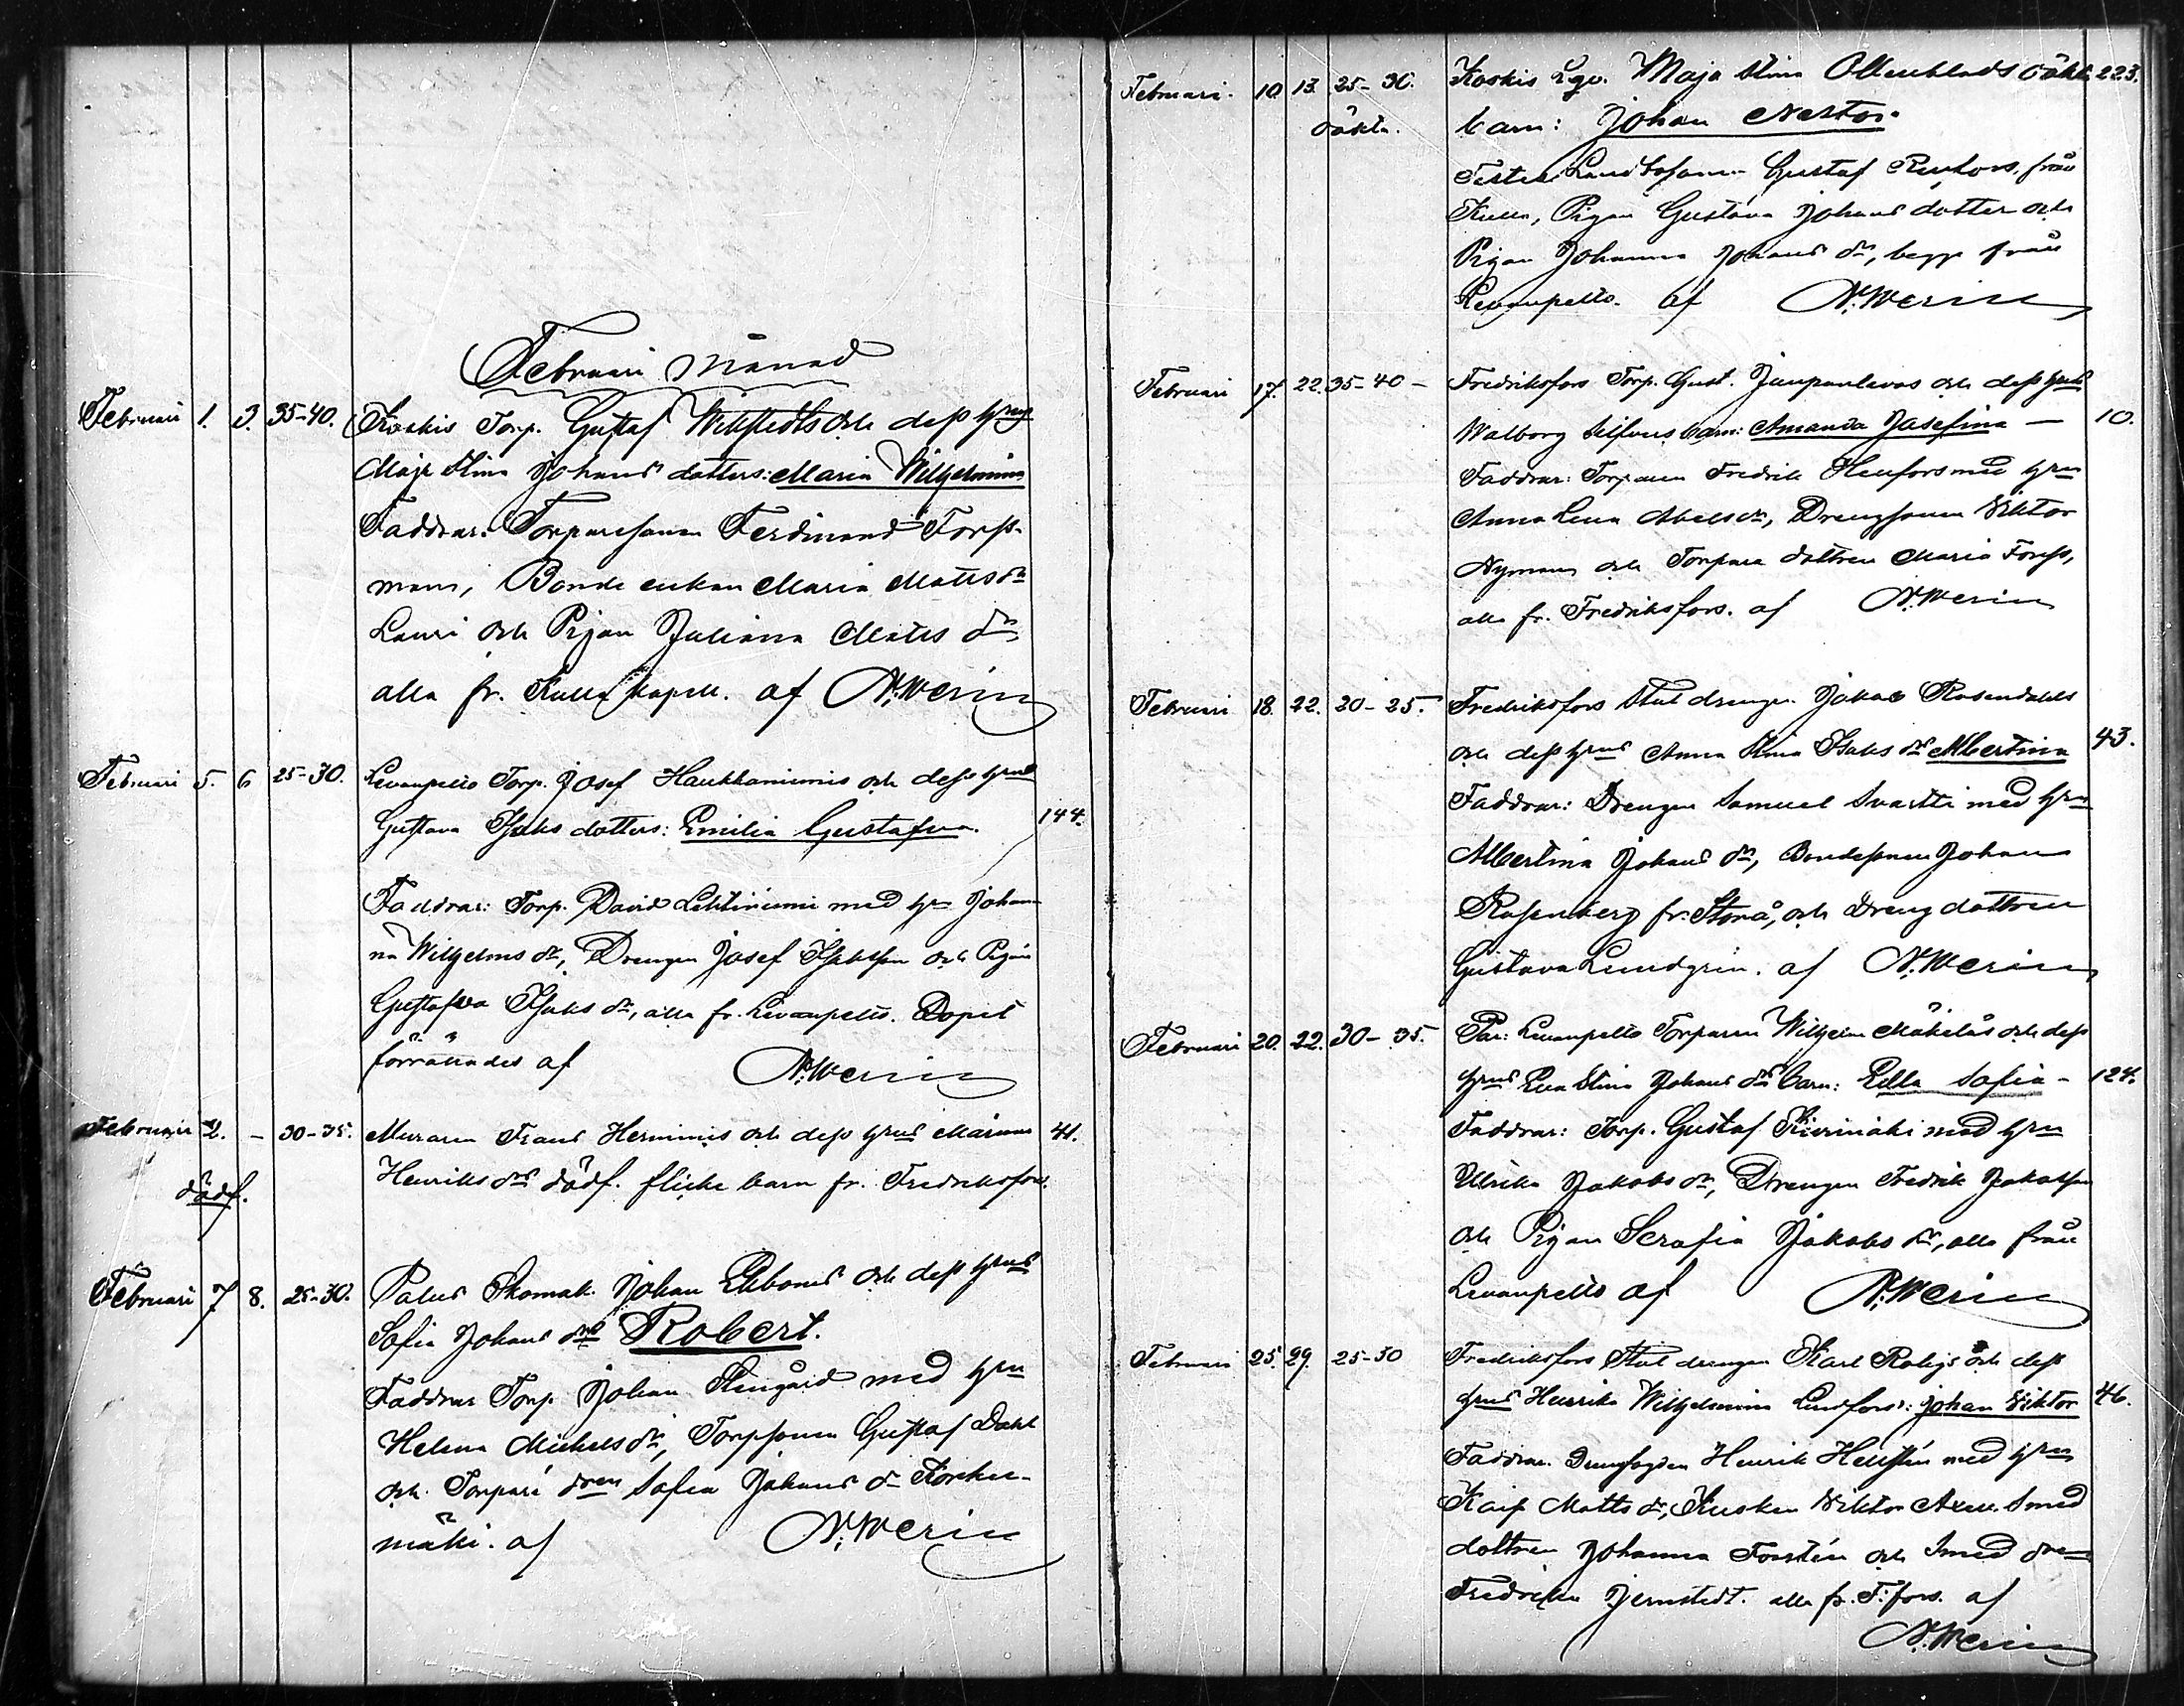 Februari månad
Februari 1. 3. 35-40. Koskis Torp. Gustaf Wikstedts och dess hru
Maja Stina Johans dotters: Maria Wilhelmina
Faddrar: Torparesonen Ferdinand Forss-
man, Bonde enkan Maria Matts dr
Lauri och Pigan Juliana Matts dr
alla fr. Kulla kapell. af N. Merin
Februari 5. 6 25-30. Levanpelto Torp. Josef Haukkaniemis och dess hrus
Gustava Isaks dotters: Emilia Gustafva. 144.
Faddrar: Torp. David Lehtiniemi med hru Johan-
na Wilhelms dr, Drengen Josef Isaksson och Pigan
Gustafva Isaks dr, alla fr. Levanpelto. Dopet
förrättades af N. Merin
Februari 2. - 30-35. Muraren Frans Herninnis och dess hrus Marias 41.
dödf. Henriks drs dödf. flicke barn fr. Fredriksfors.
Februari 7 8. 25-30. Palus Skomak. Johan Ekboms och dess hrus
Sofia Johans drs Robert.
Faddrar Torp. Johan Stengård med hru
Helena Mickels dr, Torpsonen Gustaf Dahl
och Torpare dren Sofia Johans dr
mäki. af N. Merin
Februari. 10. 13. 25-30. Koskis Maja Stina Ollenblads oäkt. 223.
oäkta. barn: Johan Nestor.
Gustaf från
Kulla, Pigan Gustava Johans dotter och
Pigan Johanna Johans dr, begge från
Levanpelto. af N. Merin
Februari 17. 22. 35-40 - Fredriksfors Torp. Gust. och dess hrus
Walborg Silfvers barn: Amanda Josefina — 10.
Faddrar: Torparen Fredrik Henfors med hru
Anna Lena Abels dr, Drengsonen Viktor
Nyman och Torpare dottren Maria Forss,
alla fr. Fredriksfors. af N. Merin
Februari 18. 22. 20-25. Fredriksfors Stal drengen Jakob Rosendahls
och dess hrus Anna Stina Isaks drs Albertina 43.
Faddrar: Drengen Samuel Svartti med hru
Albertina Johans dr, Bondesonen Johan
Rosenberg fr. Storå, och Dreng dottren
Gustava Lundgrén. af N. Merin
Februari 20. 22. 30-35. Par: Levanpelto Torparen Wilhelm Mäkeläs och dess
hrus Eva Stina Johans drs barn: Edla Sofia - 124.
Faddrar: Torp. Gustaf Kivimäki med hru
Ulrika Jakobs dr, Drengen Fredrik Jakobsson
och Pigan Serafia Jakobs dr, alla från
Levanpelto af N. Merin
Februari 25. 29. 25-30 Fredriksfors Stal drengen Karl och dess
hrus Henrika Wilhelmina Lindfors: Johan Viktor 46.
Faddrar. Drengfogden Henrik Hellstén med hru
Kajsa Matts dr, Kusken Viktor Axell. Smed
dottren Johanna Forstén och Smed dren
Fredrika Jernstedt. alla fr. F:fors. af
N. Merin